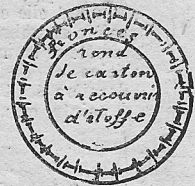 fronces
rond
de carton
à recouvrir
d'étoffe